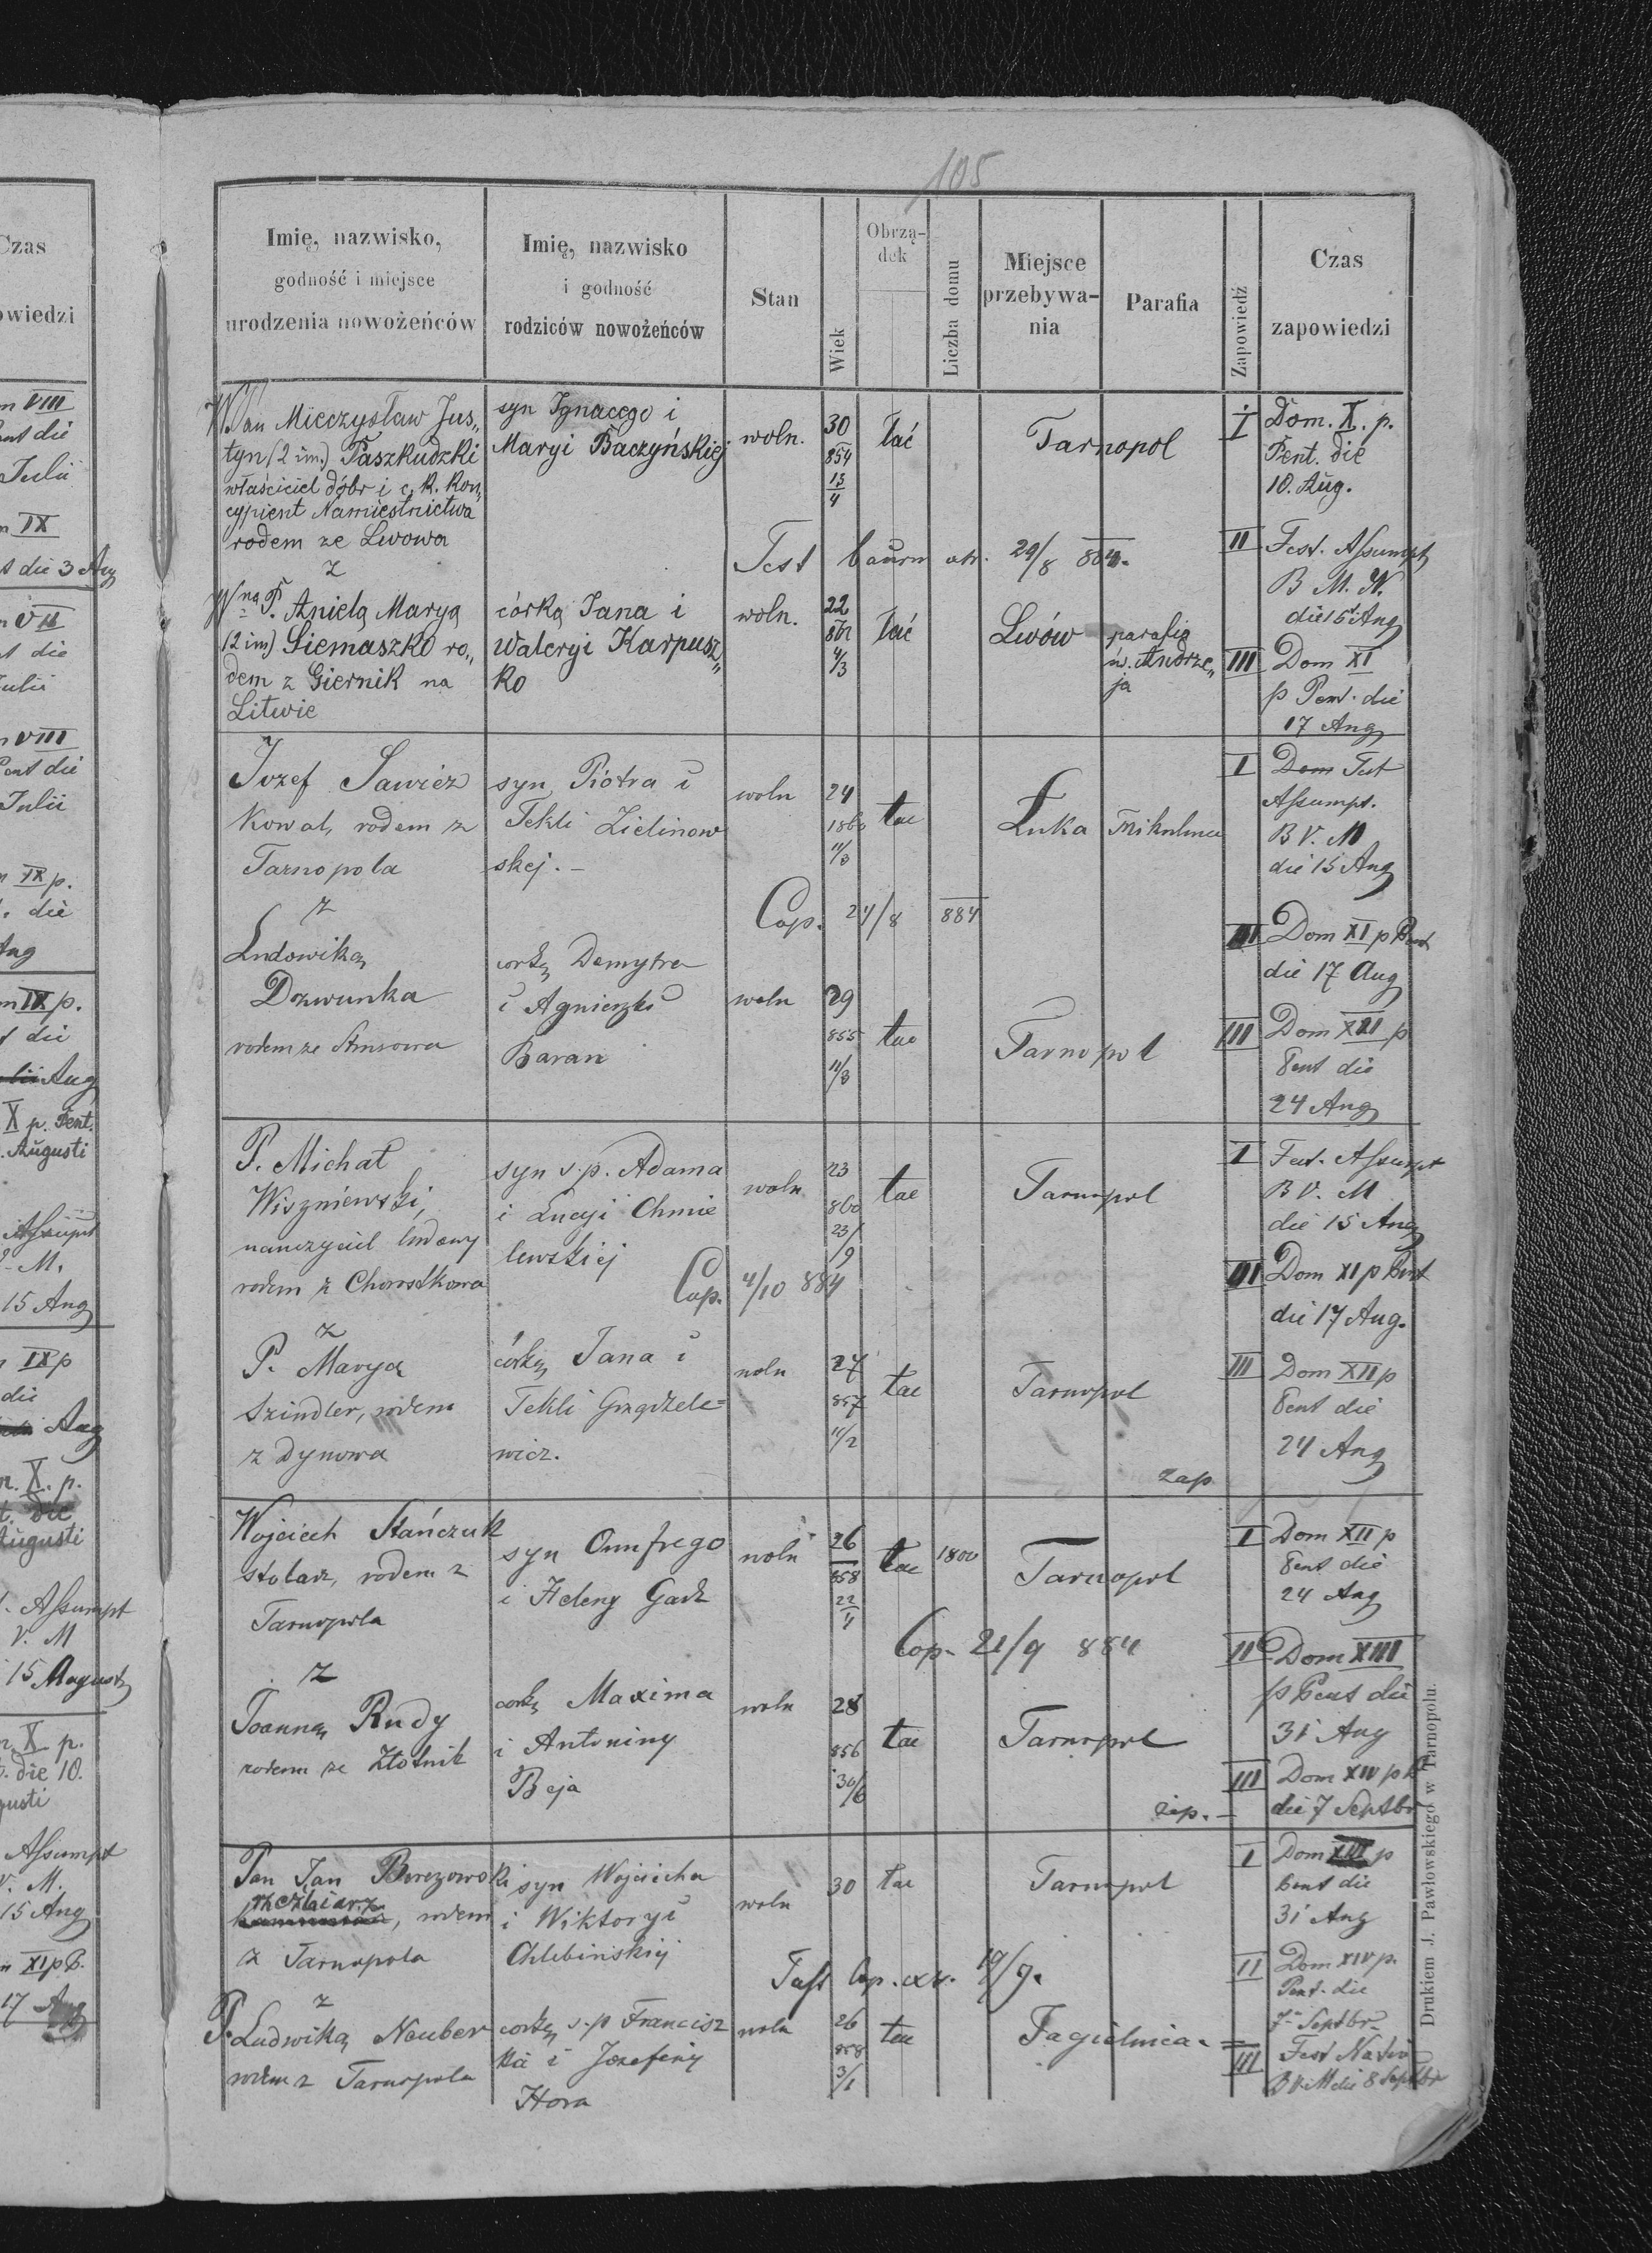 105
Imię, nazwisko,
godność i miejsce
urodzenia nowożeńców
Imię, nazwisko
i godność
rodziców nowożeńców
Stan
Wiek
Obrzą-
dek
Liczba domu
Miejsce
przebywa-
nia
Parafia
Zapowiedź
Czas
zapowiedzi
Czas
W. Jan Mieczysław Jus„
tyn (2 im.) Paszkudzki
właściciel dóbr i c. k. kon„
cypient Namiestnictwa
rodem ze Lwowa
z
syn Ignacego i
Maryi Baczyńskiej
woln.
30
854
13
4
łać
Tarnopol
I Dom. X. p.
Pent. die
10. Aug.
Test 29/8 884.
II Fest. Assumpt
B M. V.
die 15 Aug
Wną P. Anielą Maryą
(2 im) Siemaszko ro„
dem z Giernik na
Litwie
córką Jana i
Waleryi Karpusz„
ko
woln.
22
862
4/3
łać
Lwów
parafia
św. Andrze„
ja
III Dom XI
p Pent. die
17 Aug
Jozef Sawicz
Kowal, rodem z
Tarnopola
z
syn Piotra i
Tekli Zielinow
skej. –
woln
24
1860
11/3
łac
Łuka
Mikulince
I Dom Fest
Assumpt.
B V. M
die 15 Aug
Cop. 24/8 884
II Dom XI p Pent
die 17 Aug
Ludowiką
Dzwunka
corką Demytra
i Agnieszki
Baran
woln
29
855
11/3
łac
Tarnopol
III Dom XII p
Pent die
24 Aug
P. Michał
Wiszniewski,
nauczyciel ludowy
rodem z Chorostkowa
z
syn ś.p. Adama
i Lucyi Chmie
lewskiej
woln
23
860
23/
9
łac
Tarnopol
I Fest. Assumpt
B V. M
die 15 Aug
Cop. 4/10 884
II Dom XI p Pent
die 17 Aug.
P. Marya
Szindler, rodem
z Dynowa
córką Jana i
Tekli Grządziele=
wicz.
woln
27
857
11/2
łac
Tarnopol
zap
III Dom XII p
Pent die
24 Aug
Wojciech Stańczuk
stolarz, rodem z
Tarnopola
z
syn Onufrego
i Heleny Gach
woln
26
858
22
4
łac
1800
Tarnopol
I Dom XII p
Pent die
24 Aug
Cop. 21/9 884
II Dom XIII
p Pent die
31 Aug
Joanną Rudy
rodem ze Złotnik
corką Maxima
i Antoniny
Beja
woln
28
856
30/6
łac
Tarnopol
zap. –
III Dom XIV p P
die 7 Septbr
Pan Jan Berezowski
rzeźbiarz, rodem
z Tarnopola
z
syn Wojciecha
i Wiktoryi
Chlebińskiej
woln
30
łac
Tarnopol
I Dom XIII p
Pent die
31 Aug
Test Cop. ex. 19/9.
II Dom XIV p.
Pent. die
7 Septbr
P. Ludwiką Neuber
rodem z Tarnopola
corką ś.p Francisz
ka i Jozefiny
Hora
woln
26
858
3/1
łac
Jagielnica
III Fest Nativ
B V M die 8 Septbr
Drukiem J. Pawłowskiego w Tarnopolu.